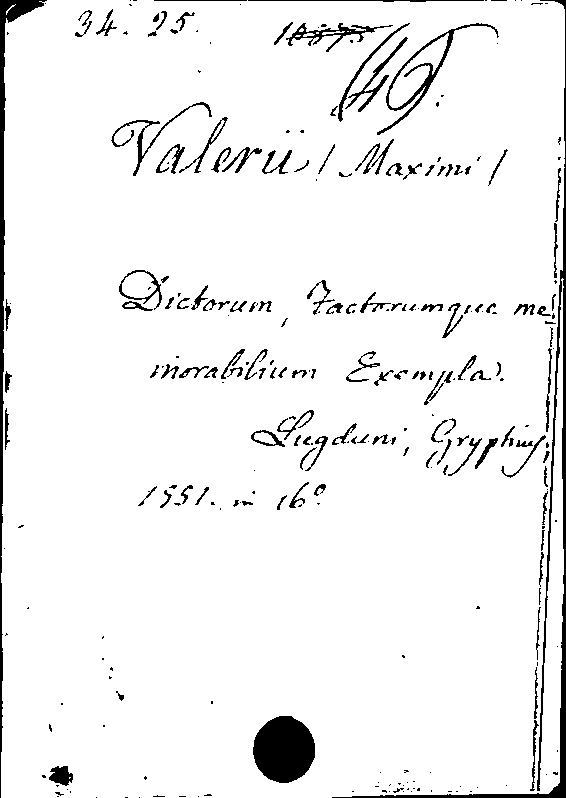 34. 25.
(46).
Valerii / Maximi /
Dictorum, Factorumque me
morabilium Exempla.
Lugduni, Gryphius,
1551. in 16º